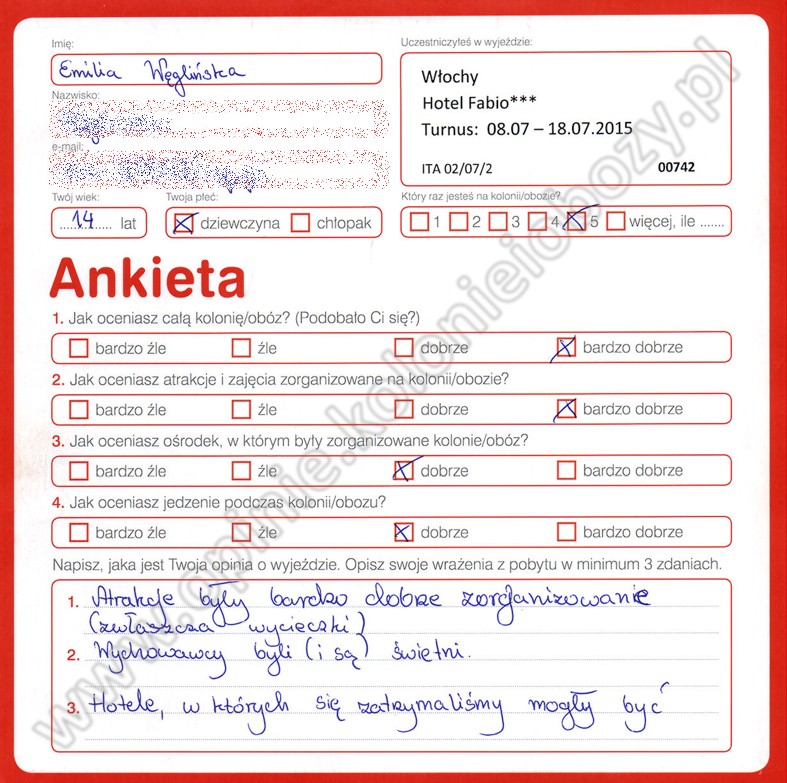 Imię:
Emilia Węglińska
Nazwisko:
e-mail:
Twój wiek:
14 lat
Twoja płeć:
dziewczyna chłopak
Uczestniczyłeś w wyjeździe:
Włochy
Hotel Fabio***
Turnus: 08.07 – 18.07.2015
ITA 02/07/2 00742
Który raz jesteś na kolonii/obozie?
1 2 3 4 5 więcej, ile .......
Ankieta
1. Jak oceniasz całą kolonię/obóz? (Podobało Ci się?)
bardzo źle źle dobrze bardzo dobrze
2. Jak oceniasz atrakcje i zajęcia zorganizowane na kolonii/obozie?
bardzo źle źle dobrze bardzo dobrze
3. Jak oceniasz ośrodek, w którym były zorganizowane kolonie/obóz?
bardzo źle źle dobrze bardzo dobrze
4. Jak oceniasz jedzenie podczas kolonii/obozu?
bardzo źle źle dobrze bardzo dobrze
Napisz, jaka jest Twoja opinia o wyjeździe. Opisz swoje wrażenia z pobytu w minimum 3 zdaniach.
1. Atrakcje były bardzo dobrze zorganizowanie
(zwłaszcza wycieczki)
2. Wychowawcy byli (i są) świetni.
3. Hotele, w których się zatrzymaliśmy mogły być
www.opinie.kolonieiobozy.pl